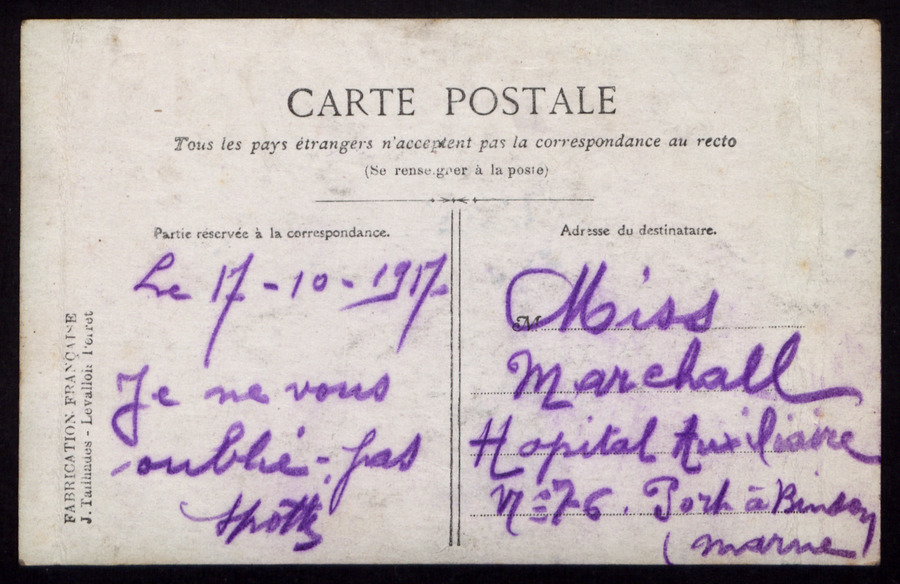 CARTE POSTALE
Tous les pays étrangers n'acceptent pas la correspondance au recto
(Se renseigner à la poste)
Partie réservée à la correspondance.
Adresse du destinataire.
Le 17-10-1917.
Je ne vous
oublié-pas
M Miss
Marchall
Hopital Auxiliaire
No 76. Port à Binson
(marne
FABRICATION FRANÇAISE
J. Tailhades - Levallois Perret